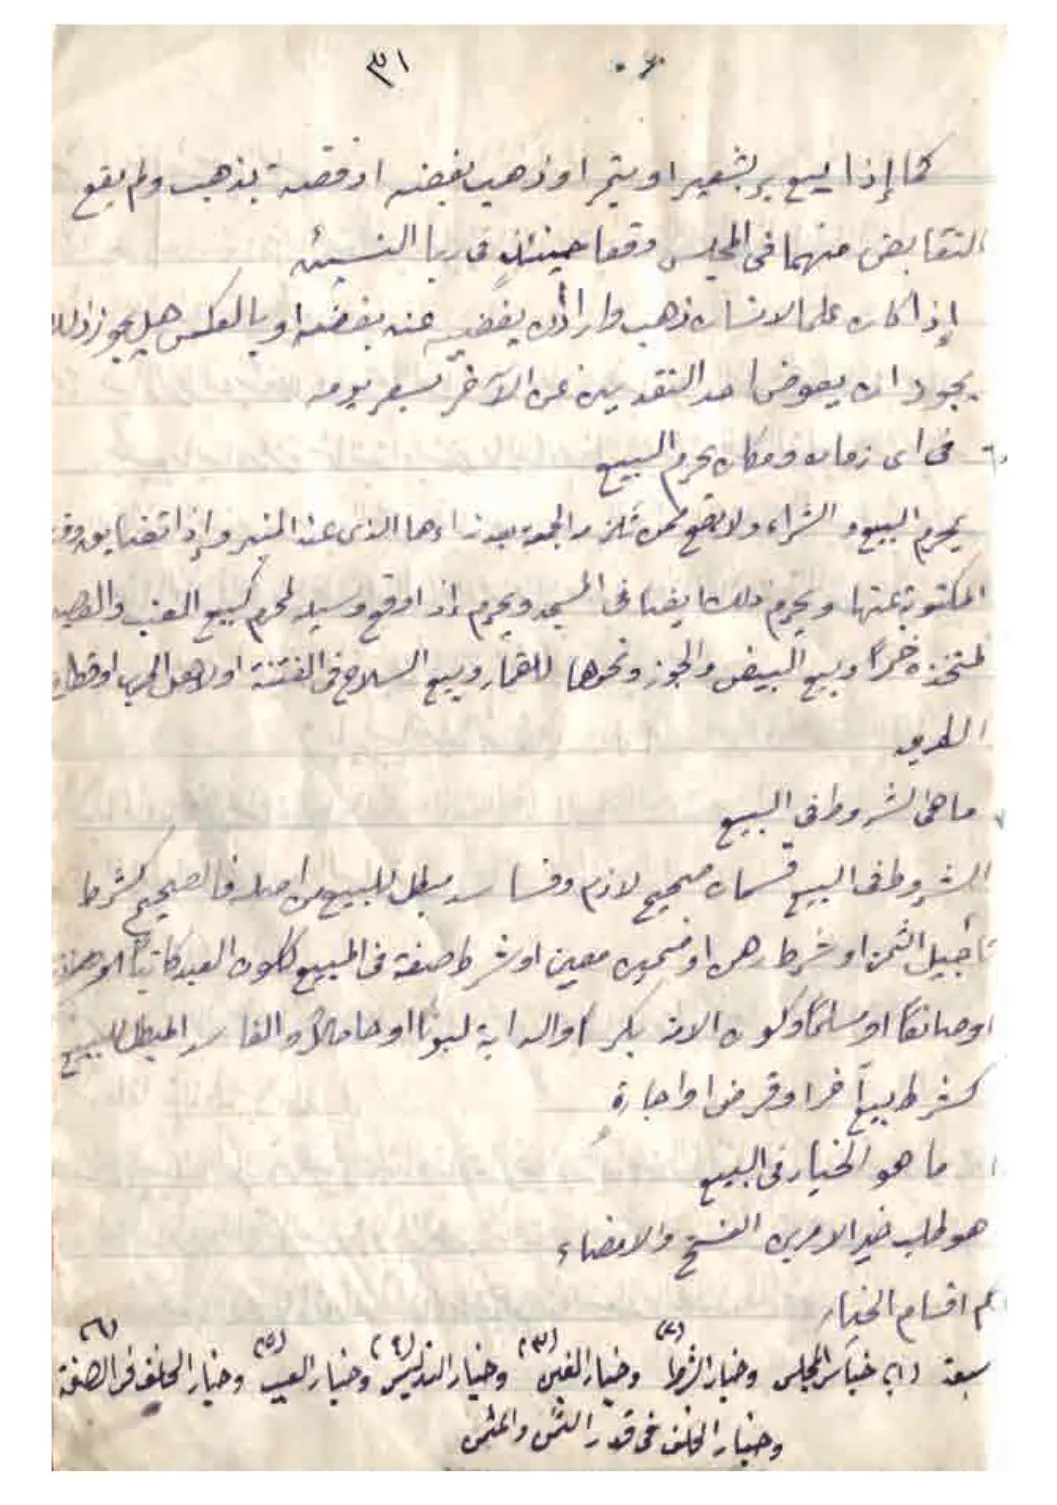 ٣١
كما إذا بيع بر بشعير او بتمر او ذهب بفضه او فضة بذهب ولم يقع
التقابض منهما فى المجلس وقعا حينئذ فى ربا النسيئه
إذا كان على الانسان ذهب واراد ان يقضيه عنه بفضه او بالعكس هل يجوز ذلك
يجوز ان يعوض احد النقدين عن الآخر بسعر يومه
فى اى زمان ومكان يحرم البيع
يحرم البيع والشراء ولا يصح ممن تلزمه الجمعة بعد نداءها الذى عند المنبر وإذا تضايق وقت
المكتوبة عنها ويحرم ذلك ايضا فى المسجد ويحرم إذا وقع وسيلة لمحرم كبيع العنب والعصير
لمتخذه خمراً وبيع البيض والجوز ونحوها للقمار وبيع السلاح فى الفتنة او لاهل الحرب او قطاع
الطريق
ما هى الشروط فى البيع
الشروط فى البيع قسمان صحيح لازم وفاسد مبطل للبيع من اصله فالصحيح كشرط
تأجيل الثمن او شرط رهن او ضمين معين او شرط صفة فى المبيع ككون العبد كاتباً
او صانعاً او مسلماً وكون الامه بكراً والدابة لبوناً او حاملاً والفاسد المبطل للبيع
كشرط بيعاً آخر او قرضا او اجارة
ما هو الخيار فى البيع
هو طلب خير الامرين الفسخ والامضاء
كم اقسام الخيار
سبعة (١) خيار المجلس (٢) وخيار الشرط (٣) وخيار الغبن (٤) وخيار التدليس (٥) وخيار العيب (٦) وخيار الخلف فى الصفة
وخيار الخلف فى قدر الثمن والمثمن